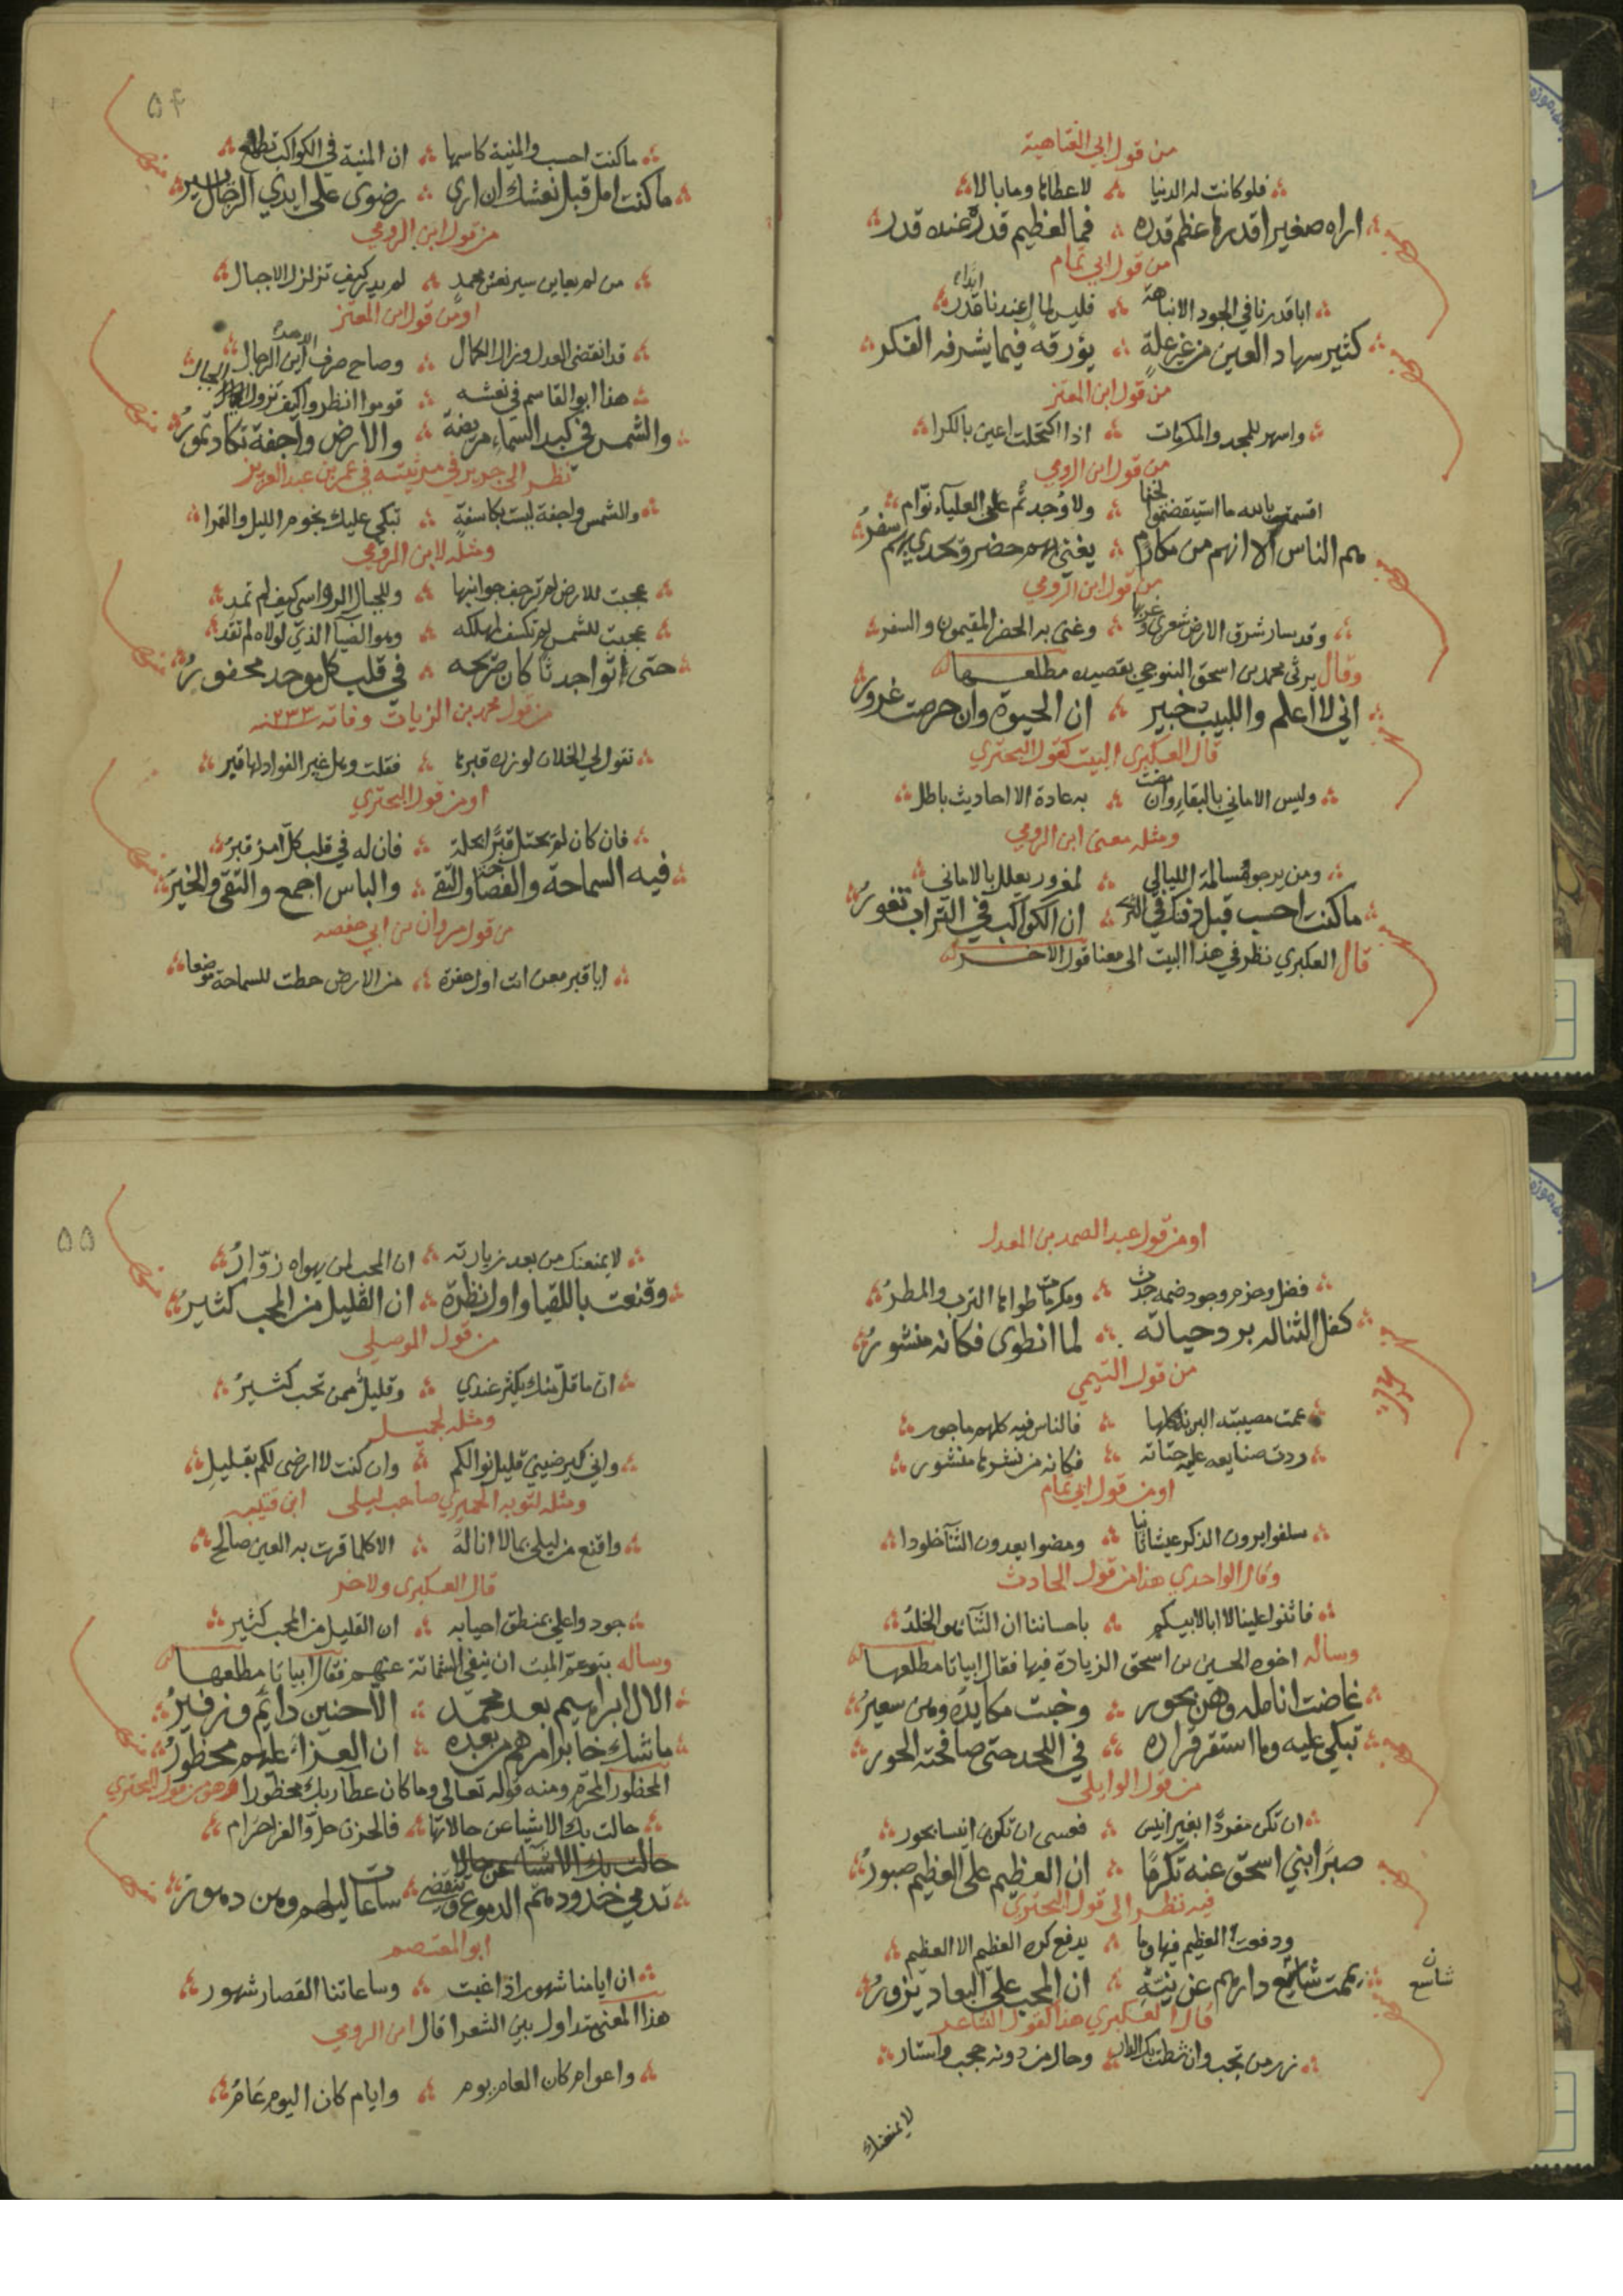 من قول ابي العتاهية
فلو كانت له الدنيا لاعطاها وما بالا
اراه صغيرا قدرها عظم قدره فما لعظيم قدره عنده قدر
من قول ابي تمام
ابا قدرنا في الجود الا نباهة فليس لمال عندنا ابدا قدر
كثير سهاد العين من غير علة يؤرقه فيما يشرفه الفكر
من قول ابن المعتز
واسهر للمجد والمكرمات اذا اكتحلت اعين بالكرا
من قول ابن الرومي
اقسمت بالله ما استيقضتموا لخنا ولا وجدتم على العلياء نوّام
هم الناس الا انهم من مكارم يغني بهم حضر ويحدي بهم سفر
من قول ابن الرومي
وقد سار شرق الارض شعري وغربها وغنى به الحضر المقيمون والسفر
وقال يرثي محمد بن اسحق التنوخي بقصيده مطلعها
اني لا اعلم واللبيب خبير ان الحيوة وان حرصت غرور
قال العكبري البيت كقول البحتري
وليس الاماني بالبقاء وان مضت به عادة الا احاديث باطل
ومثله معنى ابن الرومي
ومن يرجو مسالمة الليالي لمغرور يعلل بالاماني
ما كنت احسب قبل دفنك في الثرى ان الكواكب في التراب تغور
قال العكبري نظر في هذا البيت الى معنا قول الاخر
٥۴
ما كنت احسب والمنية كاسمها ان المنية في الكواكب تطلع
ما كنت امل قبل نعشك ان ارى رضوى على ايدي الرجال يسير
من قول ابن الرومي
من لم يعاين سير نعش محمد لم يدر كيف تزلزل الاجبال
او من قول ابن المعتز
قد انقضى العدل وزال الكمال وصاح صرف الدهر اين الرجال
هذا ابو القاسم في نعشه قوموا انظروا كيف تزول الجبال
والشمس في كبد السماء مريضة والارض واجفة تكاد تمور
نظر الى جرير في مرثيته في عمر بن عبد العزيز
والشمس واجفة ليست بكاسفة تبكي عليك نجوم الليل والقمرا
ومثله لابن الرومي
عجبت للارض لم ترجف جوانبها وللجبال الرواسي كيف لم تمد
عجبت للشمس لم تكسف لمهلكه وهو الضيآ الذي لولاه لم تقد
حتى اتوا جدثا كان ضريحه في قلب كل موحد محفور
من قول محمد بن الزيات وفاته ٢٣٣ سنه
تقول لي الخلان لو زرت قبرها فقلت وهل غير الفواد لها قبر
او من قول البحتري
فان كان لم يحتل قبرا محلة فان له في قلب كل امرء قبر
فيه السماحة والفصاحة والتقى والباس اجمع والتقى والخير
من قول مروان بن ابي حفصه
ايا قبر معن انت اول حفرة من الارض حطت للسماحة موضعا
او من قول عبد الصمد بن المعدل
فضل وحزم وجود ضمه جدث ومكرمات طواها الترب والمطر
كفل الثنا له برد حياته لما انطوى فكانه منشور
من قول التيمي
عمت مصيبته البرية كلها فالناس فيه كلهم ماجور
ردت صنايعه عليه حياته فكانه من نشرها منشور
او من قول ابي تمام
سلفوا يرون الذكر عيشا ثانيا ومضوا يعدون الثنآ خلودا
وقال الواحدي هذا من قول الحادث
فاثنوا علينا لا ابا لابيكم باحساننا ان الثنآ هو الخلد
وساله اخوه الحسين بن اسحق الزيادة فيها فقال ابياتا مطلعها
غاضت انامله وهن بحور وخبت مكايده وهن سعير
تبكي عليه وما استقر قراره في اللحد حتى صافحته الحور
من قول الوايلي
ان تكن مفردا بغير انيس فعسى ان تكون انيسا بحور
صبرا بني اسحق عنه تكرما ان العظيم على العظيم صبور
فيه نظر الى قول البحتري
ودفعت العظيم فيها وما يدفع كره العظيم الا العظيم
يممت شاسع دارهم عن نيته ان المحب على البعاد يزور
ن شاسع
قال العكبري هذا القول الشاعر
زر من تحب وان شطت بك الدار وحال من دونه حجب واستار
لا يمنعنك
٥٥
لا يمنعنك من بعد زيارته ان المحب لمن يهواه زوّار
وقنعت باللقيا واول نظرة ان القليل من المحب كثير
من قول الموصلي
ان ما قل منك يكثر عندي وقليل ممن تحب كثير
ومثله لجميل
واني ليرضيني قليل نوالكم وان كنت لا ارضى لكم بقليل
ومثله لتوبه الحميري صاحب ليلى ابن قتيبه
واقنع من ليلى بما لا اناله الا كلما قرت به العين صالح
قال العكبري ولاخر
جودوا علي بمنطق احيا به ان القليل من المحب كثير
وساله بنو عم الميت ان ينفي الشماتة عنهم فقال ابياتا مطلعها
الآل ابراهيم بعد محمد الا حنين دايم وزفير
ما شك خابر امرهم من بعده ان العزاء عليهم محظور
المحظور المحرم ومنه قوله تعالى وما كان عطآء ربك محظورا وهو من قول البحتري
حالت بك الاشيا عن حالاتها فالحزن حل والعزا حرام
حالت بك الاشيا عن حالا
تدمي خدودهم الدموع وتنقضي ساعات ليلهم وهن دهور
ابو المعتصم
ان ايامنا شهور اذا غبت وساعاتنا القصار شهور
هذا المعنى متداول بين الشعرا قال ابن الرومي
واعوام كان العام يوم وايام كان اليوم عام